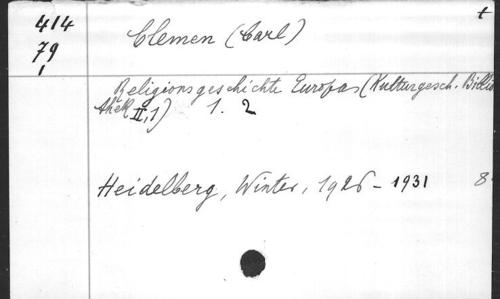 414
79
1
t
Clemen (Carl)
Religionsgeschichte Europas (Kulturgesch. Biblio
thek II,1) 1. 2
Heidelberg, Winter, 1926 - 1931 8